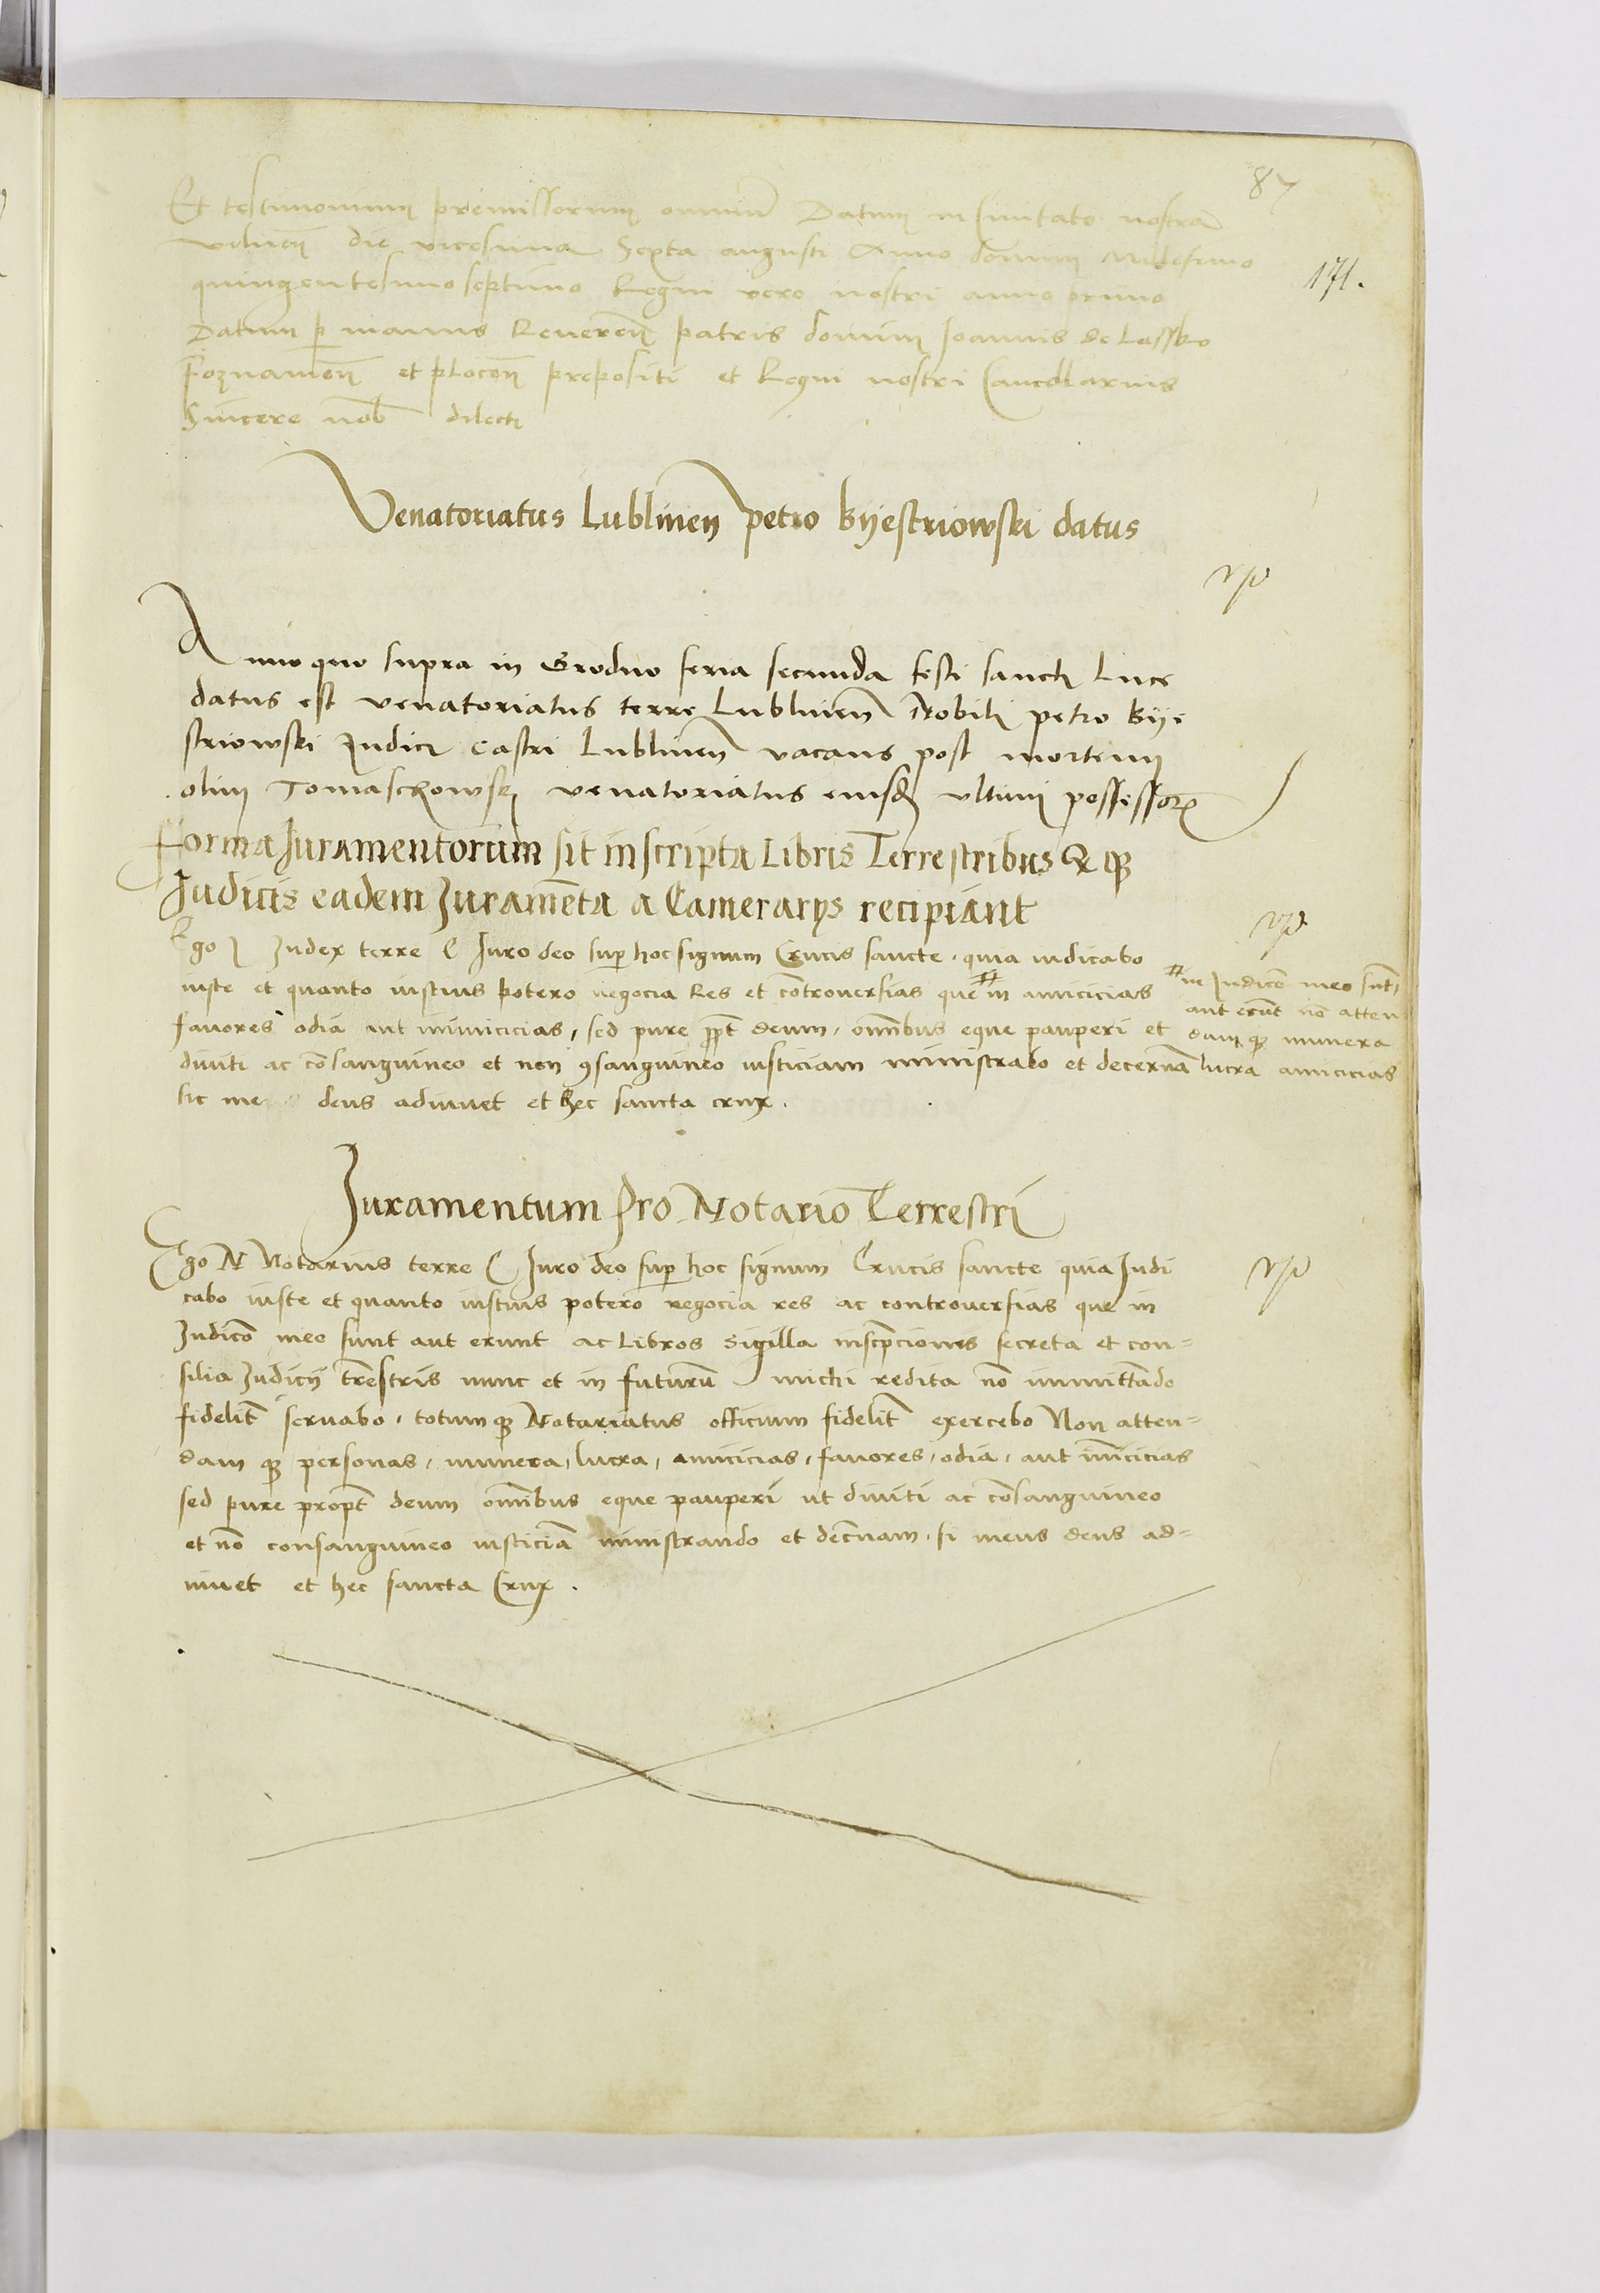 87
171.
Et testimonium premissorum omnium Datum in Civitate nostra
vilnen die vicesima Sexta augusti Anno domini Milesimo
quingentesimo septimo Regni vero nostri anno primo
Datum p manus Reveren patris domini Joannis de Lassko
Poznanien et plocen prepositi et Regni nostri Cancellarius
Sincere nob dilecti
Venatoriatus Lublinen petro Byestriowski datus
Anno quo supra in Grodno feria secunda festi sancti Luce
datus est venatoriatus terre Lublinen Nobili petro Bye
striowski Iudici Castri Lublinen vacans post mortem
olim Tomaschowski venatoriatus eiusd ultimi possessor
Forma Iuramentorum sit inscripta Libris Terrestribus & qp
Iudicis eadem Iurameta a Camerarys recipiant
Ego Iudex terre C Iuro deo sup hoc signum Crucis sancte quia iudicabo
iuste et quanto iustius potero negocia Res et cotroversias que # in amicicias
favores odia aut inimicicias, sed pure ppt deum, omibus eque pauperi et
diviti ac cosanguineo et non 9sanguineo iusticiam ministrabo et decerna
sic me deus adiuvet et hec sancta crux.
# in Iudico meo sut
aut erut no atten
dam qp munera
lucra amicicias
Iuramentum Pro Notario Terrestri
Ego N Notarius terre C Iuro deo sup hoc signum Crucis sancte quia Iudi
cabo iuste et quanto iustius potero negocia res ac controversias que in
Iudico meo sunt aut erunt ac Libros Sigilla inscpciones secreta et con-
silia Iudicii trestris nunc et in futuru michi redita no immittado
fidelit servabo, totumqp Notariatus officium fidelit exercebo Non atten-
dam qp personas, munera, lucra, amicicias, favores, odia, aut inicicias
sed pure propt deum omibus eque pauperi ut diviti ac cosanguineo
et no consanguineo iusticia ministrando et decnam. si meus deus ad-
iuvet et hec sancta Crux.